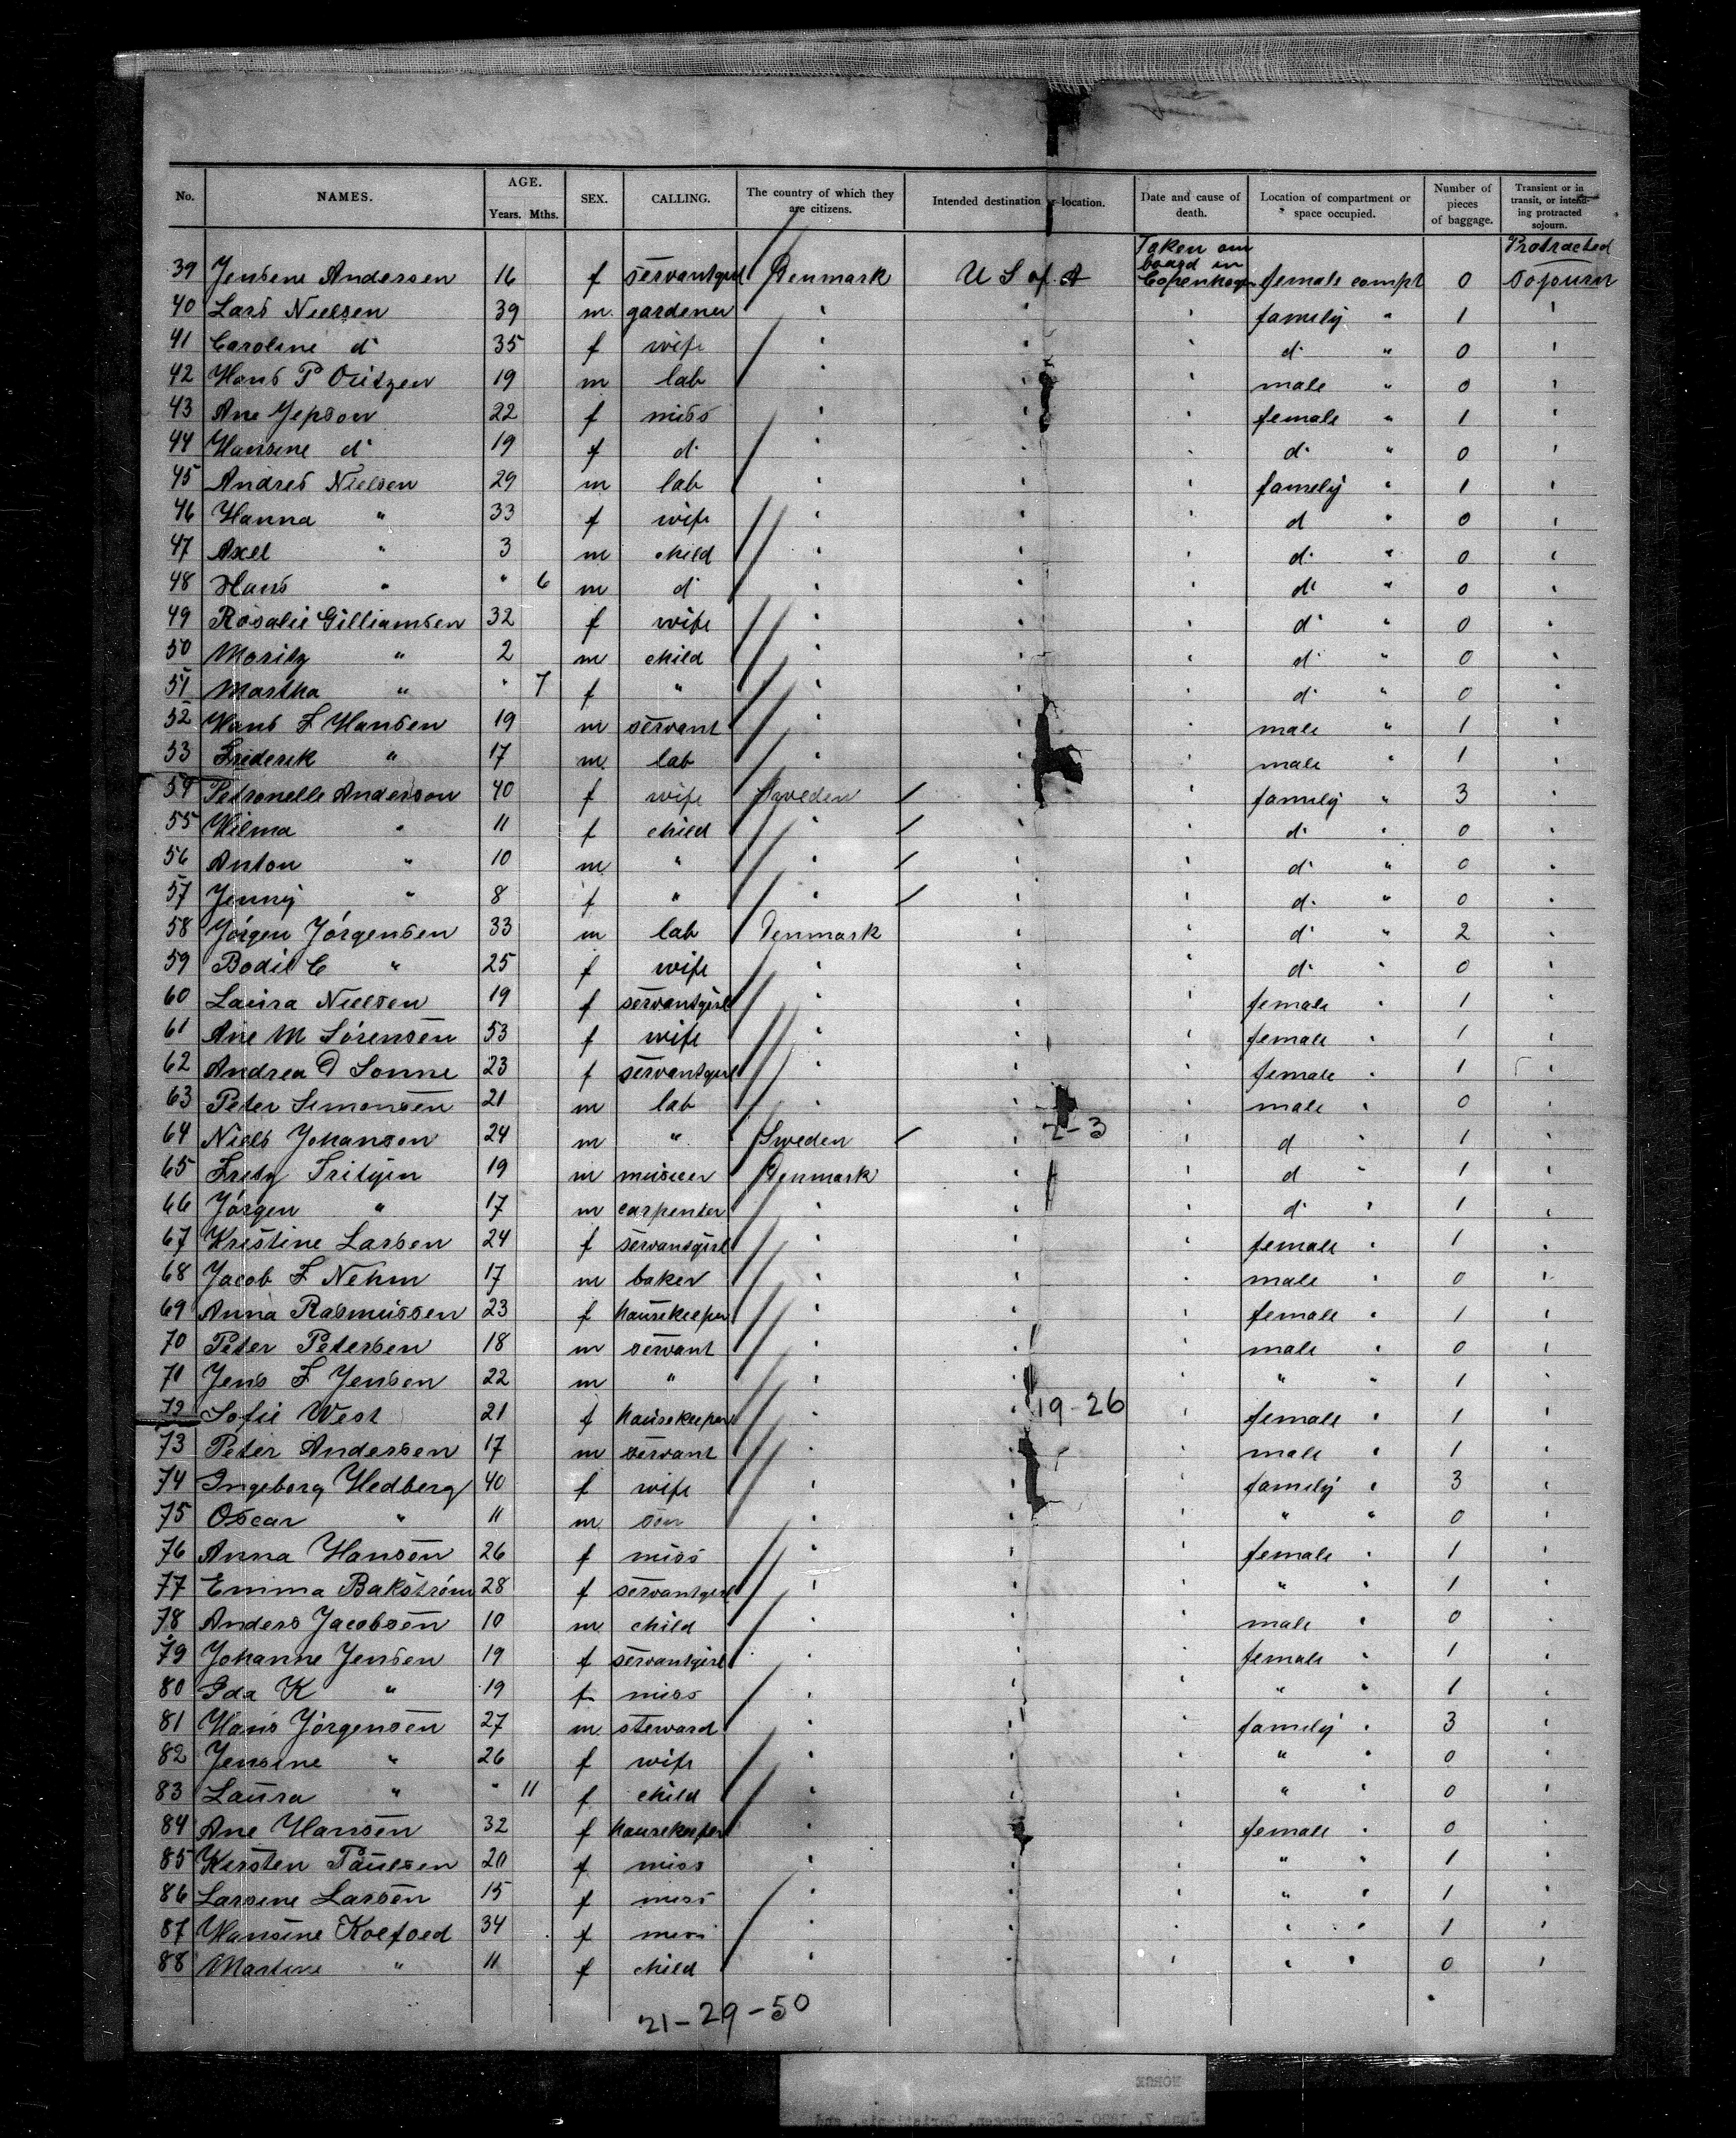 No. NAMES. AGE. Years. Mths. SEX. CALLING. The country of which they are citizens. Intended destination or location. Date and cause of death. Location of compartment or space occupied. Number of pieces of baggage. Transient or in transit, or intending protracted sojourn.
39 Jensene Andersen 16 f servantgirl Denmark U S of A Taken on board in Copenhagen female compt 0 Protracted Sojourn
40 Lars Nielsen 39 m. gardener ' ' ' family " 1 '
41 Caroline do 35 f wife ' ' ' do " 0 '
42 Hans P 19 m lab ' ' ' male " 0 '
43 Ane Jepson 22 f miss ' ' ' female " 1 '
44 Hansine do 19 f do ' ' ' do " 0 '
45 Andres Nielsen 29 m lab ' ' ' family " 1 '
46 Hanna " 33 f wife ' ' ' d " 0 '
47 Axel " 3 m child ' ' ' do " 0 '
48 Hans " " 6 m do ' ' ' do " 0 '
49 Rosalie Gilliamsen 32 f wife ' ' ' do " 0 '
50 Moritz " 2 m child ' ' ' do " 0 '
51 Martha " " 7 f " ' ' ' do " 0 '
52 Hans F Hansen 19 m servant ' ' ' male " 1 '
53 Frederik " 17 m lab ' ' ' male " 1 '
54 Petronelle Anderson 40 f wife Sweden ' ' family " 3 '
55 Hilma " 11 f child ' ' ' do " 0 '
56 Anton " 10 m " ' ' ' do " 0 '
57 Jenny " 8 f " ' ' ' do " 0 '
58 Jörgen Jörgensen 33 m lab Denmark ' ' do " 2 '
59 Bodil C " 25 f wife ' ' ' do " 0 '
60 Laura Nielsen 19 f servantgirl ' ' ' female " 1 '
61 Ane M Sörensen 53 f wife ' ' ' female " 1 '
62 Andrea D Sonne 23 f servantgirl ' ' ' female " 1 '
63 Peter Simonsen 21 m lab ' ' ' male " 0 '
2-3
64 Niels Johanson 24 m " Sweden ' ' d " 1 '
65 19 m Denmark ' ' d " 1 '
66 Jörgen " 17 m carpenter ' ' ' do " 1 '
67 Kristine Larsen 24 f servantgirl ' ' ' female " 1 '
68 Jacob F Nehm 17 m baker ' ' ' male " 0 '
69 Anna Rasmussen 23 f housekeeper ' ' ' female " 1 '
70 Peter Petersen 18 m servant ' ' ' male " 0 '
71 Jens F Jensen 22 m " ' ' ' " " 1 '
72 Sofie West 21 f housekeeper ' ' 19-26 ' female " 1 '
73 Peter Andersen 17 m servant ' ' ' male " 1 '
74 Ingeborg Hedberg 40 f wife ' ' ' family " 3 '
75 Oscar " 11 m son ' ' ' " " 0 '
76 Anna Hansen 26 f miss ' ' ' female " 1 '
77 Emma Bakström 28 f servantgirl ' ' ' " 1 '
78 Anders Jacobsen 10 m child ' ' ' male " 0 '
79 Johanne Jensen 19 f servantgirl ' ' ' female " 1 '
80 Ida K " 19 f miss ' ' ' " " 1 '
81 Hans Jörgensen 27 m steward ' ' ' family " 3 '
82 Jensine " 26 f wife ' ' ' " " 0 '
83 Laura " " 11 f child ' ' ' " " 0 '
84 Ane Hansen 32 f housekeeper ' ' ' female " 0 '
85 Kirsten Paulsen 20 f miss ' ' ' " " 1 '
86 Larsine Larsen 15 f miss ' ' ' " " 1 '
87 Hansine Koefoed 34 f miss ' ' ' " " 1 '
88 Martine " 11 f child ' ' ' " " 0 '
21-29-50